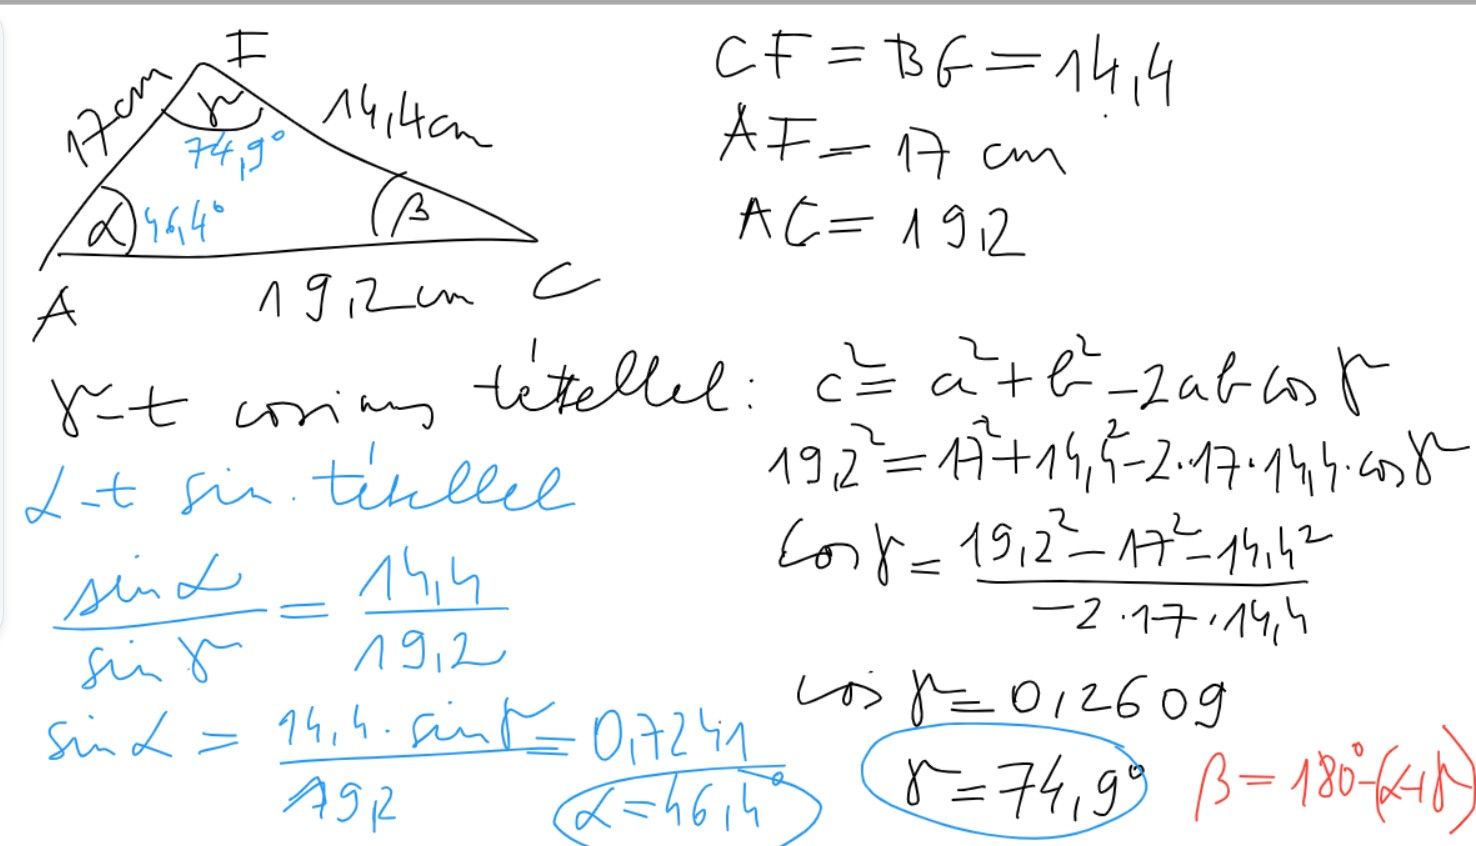 F
17cm
γ
14,4cm
74,9°
α 46,4°
β
A
19,2cm
C
CF = BG = 14,4
AF = 17 cm
AC = 19,2
γ-t cosinus tétellel: c² = a² + b² - 2ab cos γ
19,2² = 17² + 14,4² - 2·17·14,4·cos γ
cos γ = (19,2² - 17² - 14,4²) / (-2·17·14,4)
cos γ = 0,2609
γ = 74,9°
α-t sin. tétellel
sin α / sin γ = 14,4 / 19,2
sin α = 14,4·sin γ / 19,2 = 0,7241
α = 46,4°
β = 180° - (α + γ)